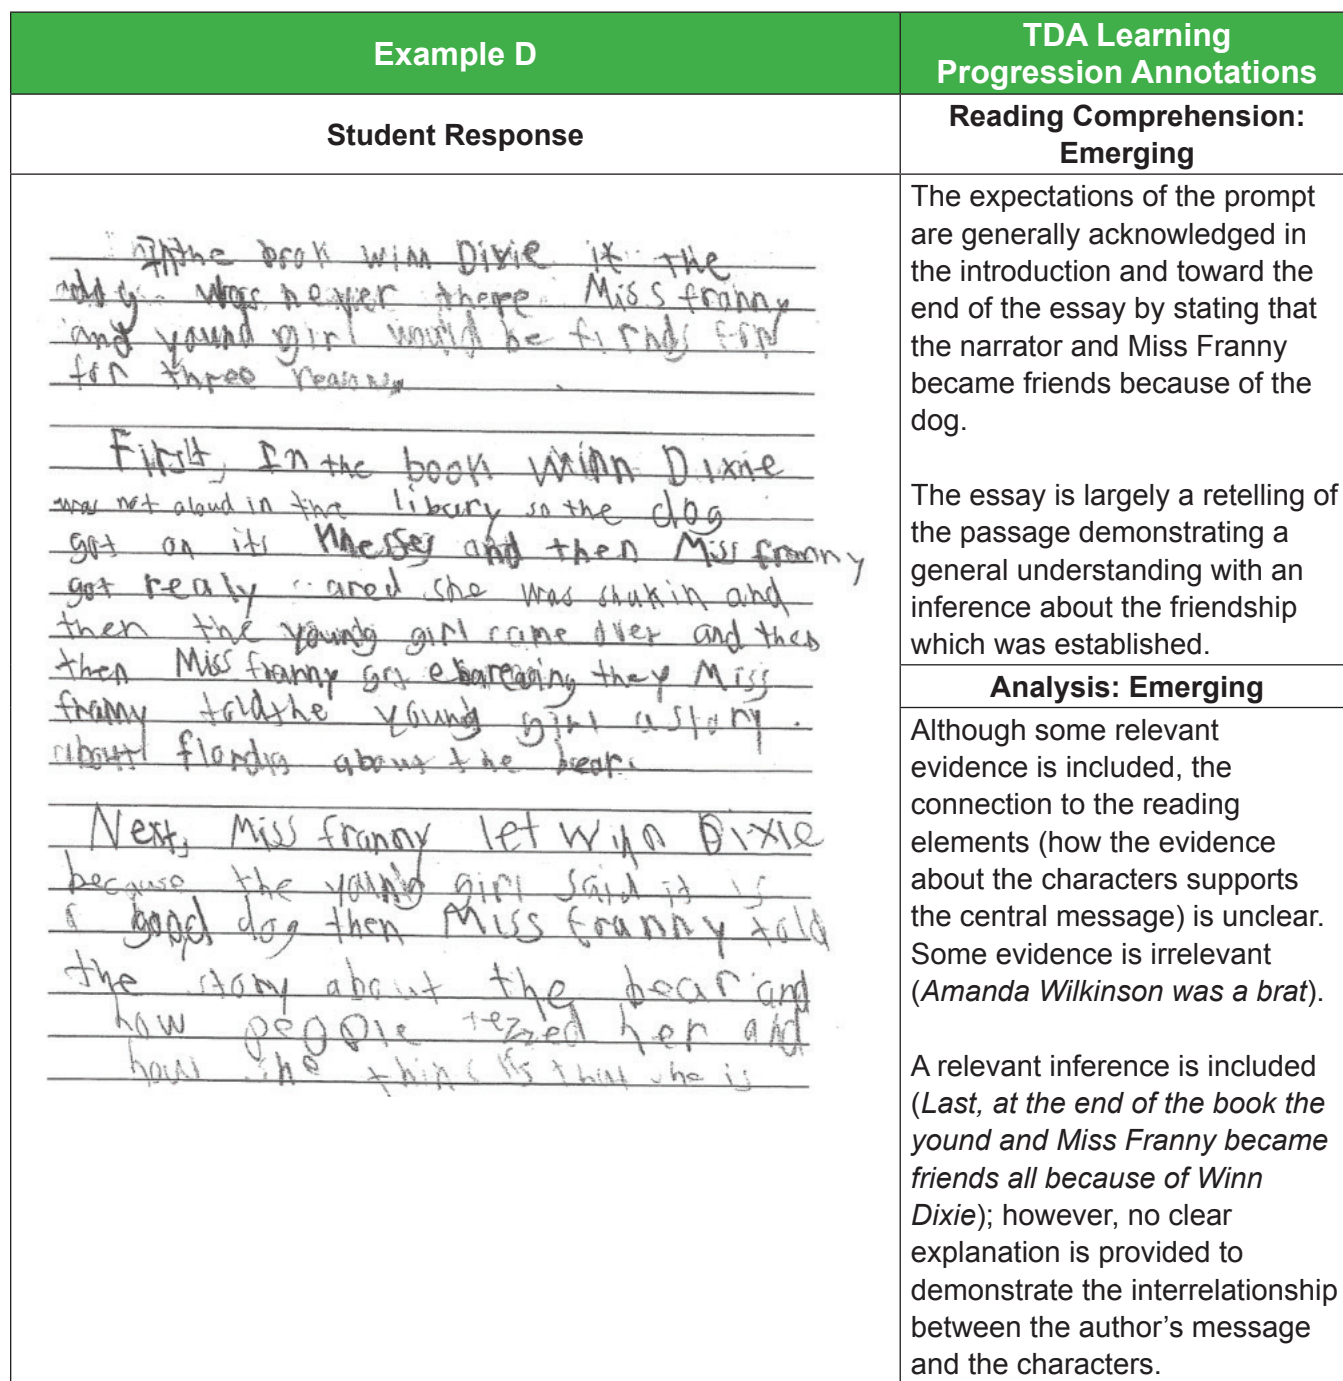 Example D
TDA Learning
Progression Annotations
Student Response
Reading Comprehension:
Emerging
In the book winn Dixie if the
dog was never there Miss franny
and yound girl would be firnds for
for three reasons
First, In the book Winn Dixie
was not aloud in the libary so the dog
got on its and then Miss franny
got realy she was shakin and
then the young girl came over and then
then Miss franny got they Miss
franny told the young girl a story.
about about the bear.
Next, Miss franny let Winn Dixie
because the young girl said it is
a good dog then Miss franny told
the story about the bear and
how people tezzed her and
how she thinks that she is
The expectations of the prompt
are generally acknowledged in
the introduction and toward the
end of the essay by stating that
the narrator and Miss Franny
became friends because of the
dog.
The essay is largely a retelling of
the passage demonstrating a
general understanding with an
inference about the friendship
which was established.
Analysis: Emerging
Although some relevant
evidence is included, the
connection to the reading
elements (how the evidence
about the characters supports
the central message) is unclear.
Some evidence is irrelevant
(Amanda Wilkinson was a brat).
A relevant inference is included
(Last, at the end of the book the
yound and Miss Franny became
friends all because of Winn
Dixie); however, no clear
explanation is provided to
demonstrate the interrelationship
between the author's message
and the characters.